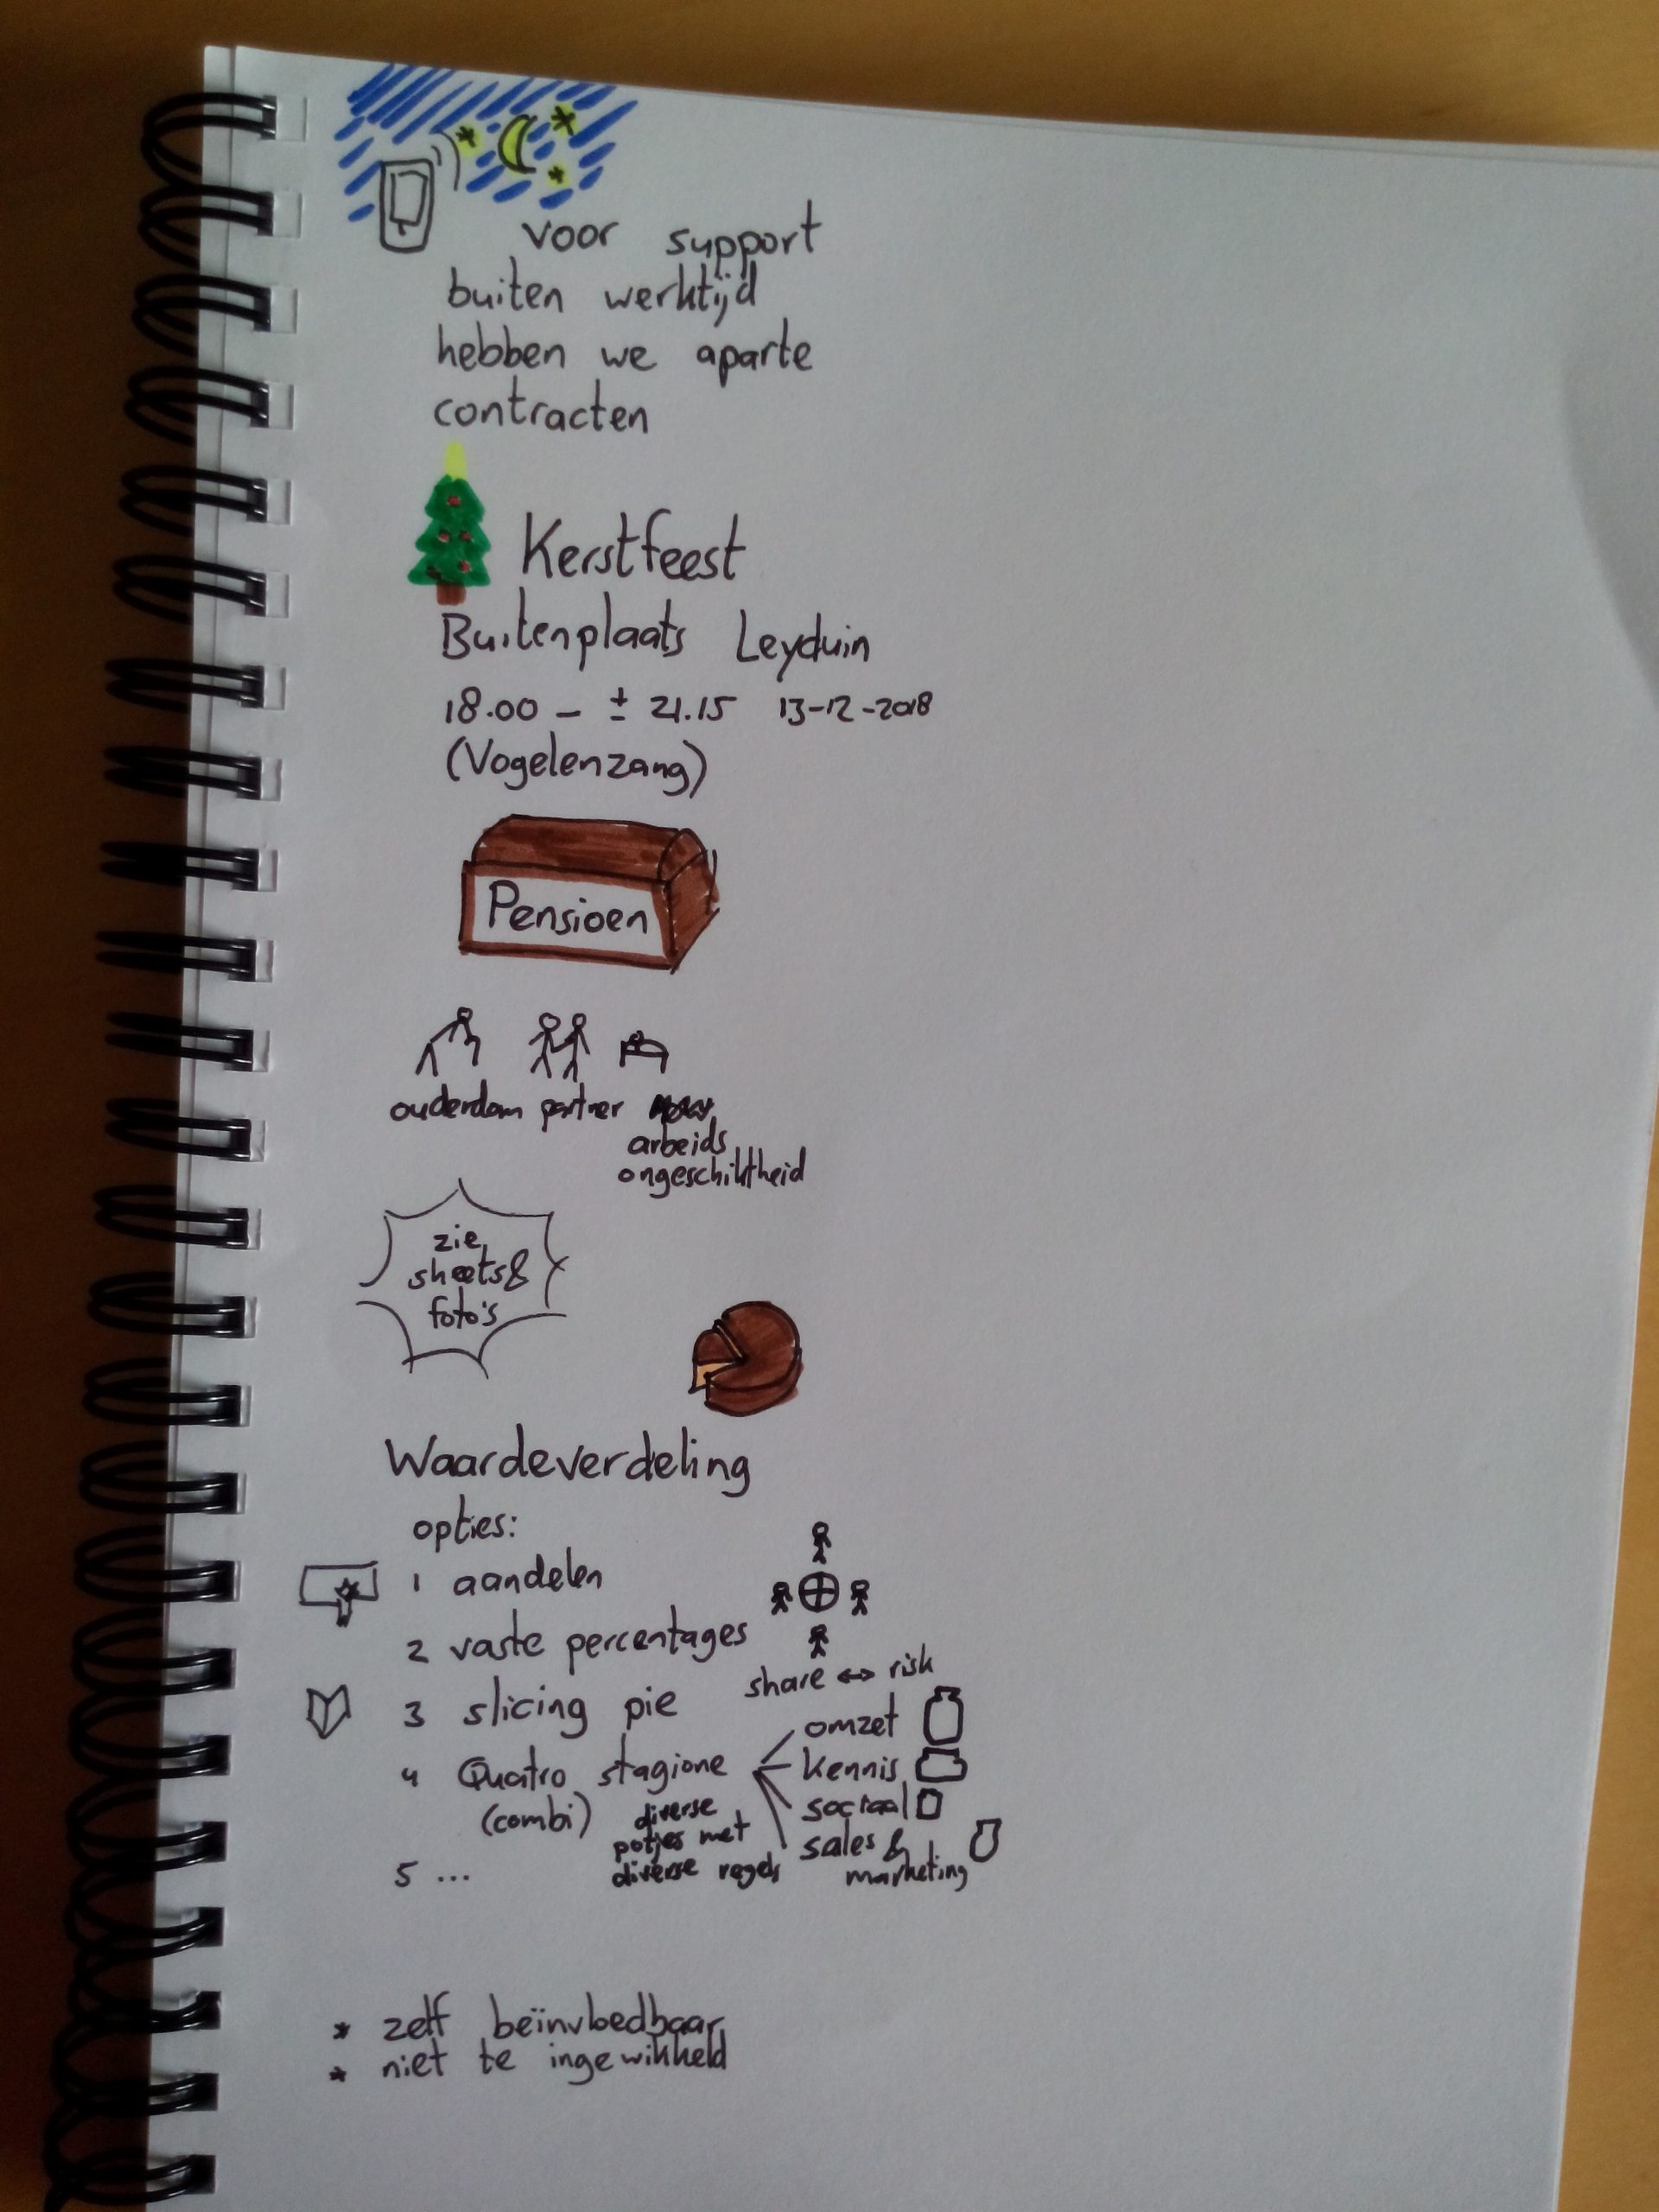 voor support
buiten werktijd
hebben we aparte
contracten
Kerstfeest
Buitenplaats Leyduin
18.00 - ± 21.15 13-12-2018
(Vogelenzang)
Pensioen
ouderdom partner
arbeids
ongeschiktheid
zie
sheets &
foto's
Waardeverdeling
opties:
1 aandelen
2 vaste percentages
share ↔ risk
3 slicing pie
omzet
4 Quatro stagione
kennis
(combi)
diverse
potjes met
diverse regels
sociaal
sales &
marketing
5 ...
* zelf beïnvloedbaar
* niet te ingewikkeld